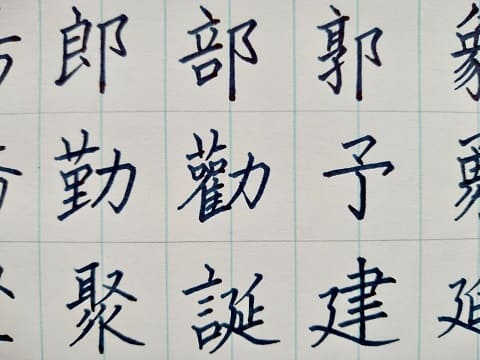 郎部郭
勤勸予
聚誕建